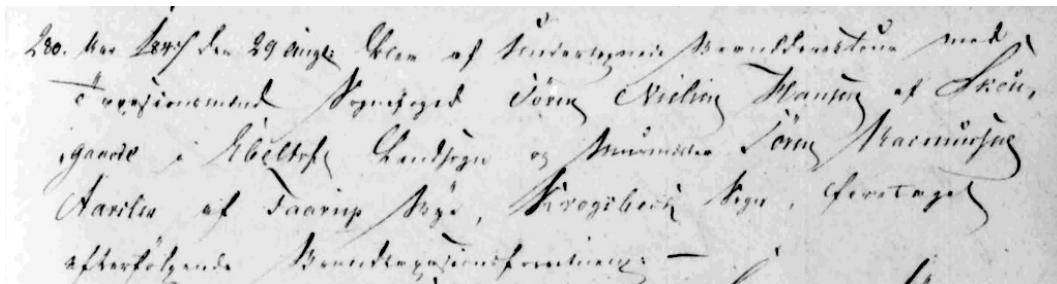 230. Aar 1847 den 29 Augt: blev af Undertegnede Branddirekteur med
Taxasionsmænd Sognefoged Sören Nielsen Hansen af Skou-
gaarde i Ebeltoft Landsogn og Muurmester Sören Rasmusen
af Taarup Bye, Kragsbech Sogn, foretaget
efterfölgende Brandtaxasionsforretning: —